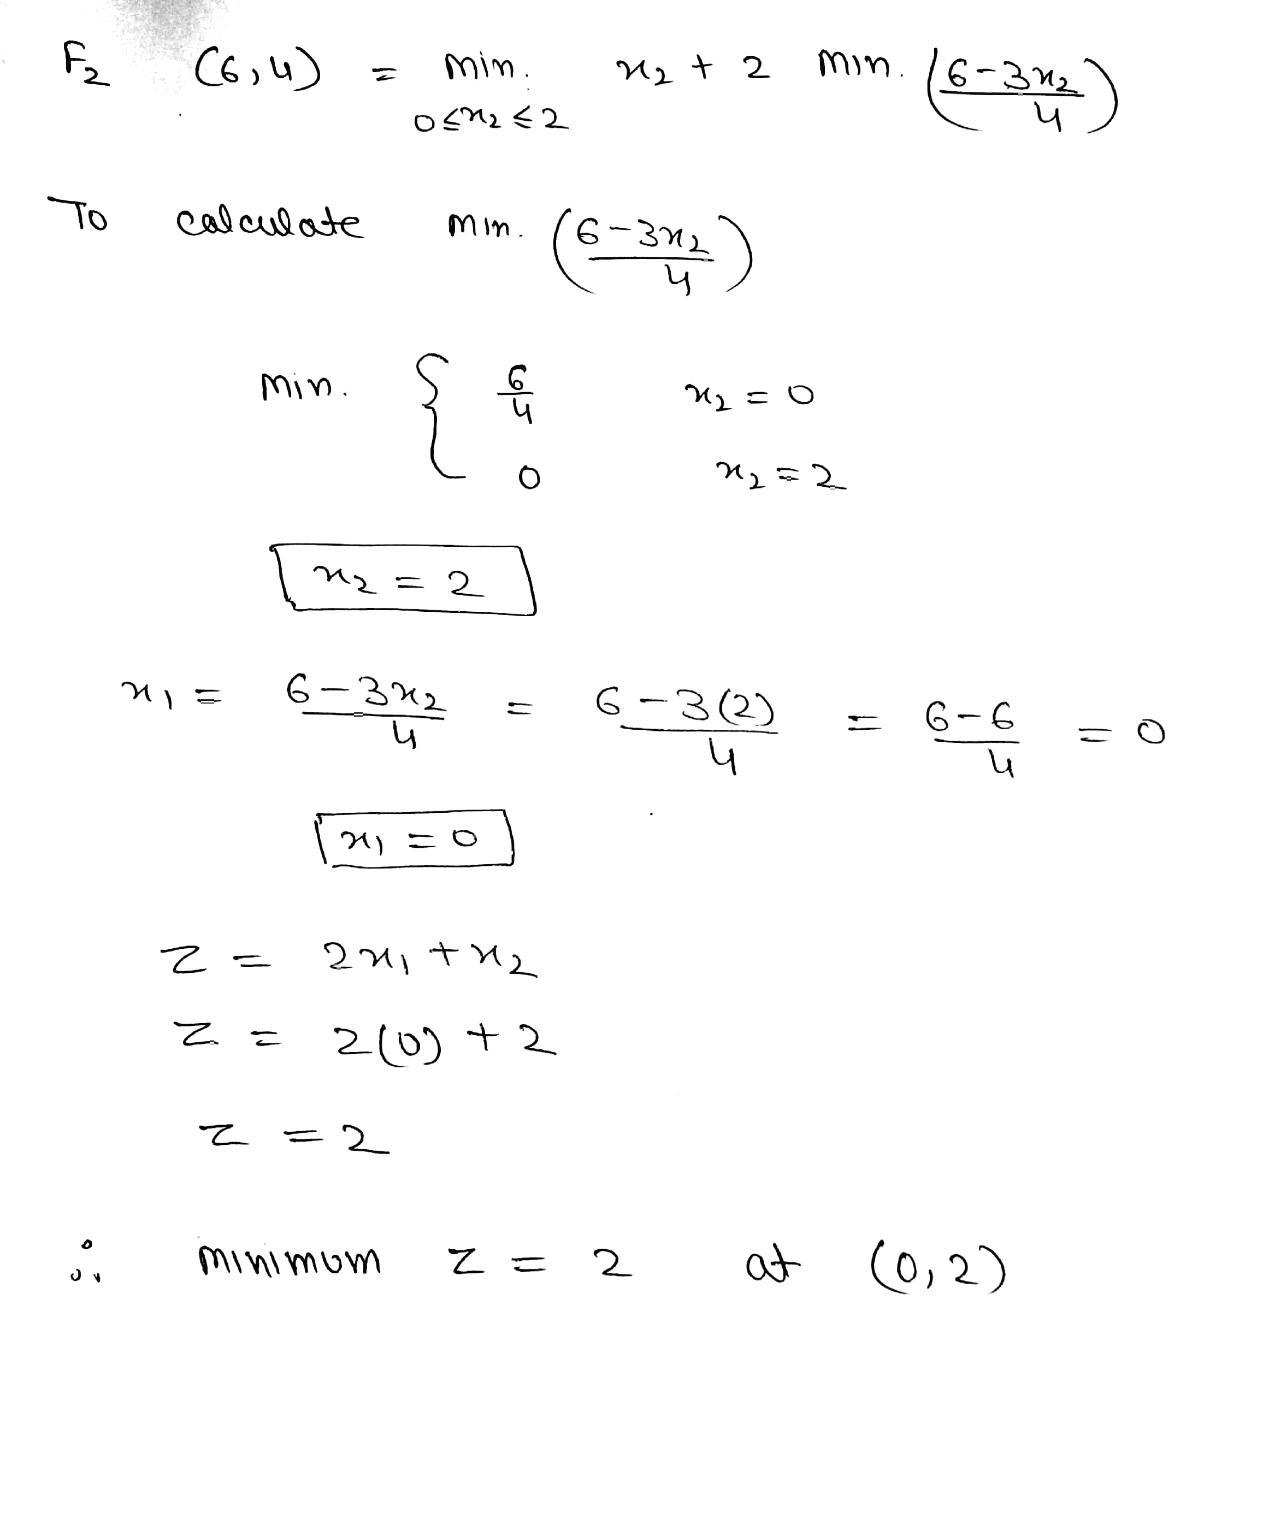 F₂ (6,4) = min. x₂ + 2 min. (6-3x₂ / 4)
0≤x₂≤2
To calculate min. (6-3x₂ / 4)
min. { 6/4 x₂ = 0
0 x₂ = 2
x₂ = 2
x₁ = 6-3x₂ / 4 = 6-3(2) / 4 = 6-6 / 4 = 0
x₁ = 0
Z = 2x₁ + x₂
Z = 2(0) + 2
Z = 2
∴ minimum Z = 2 at (0,2)